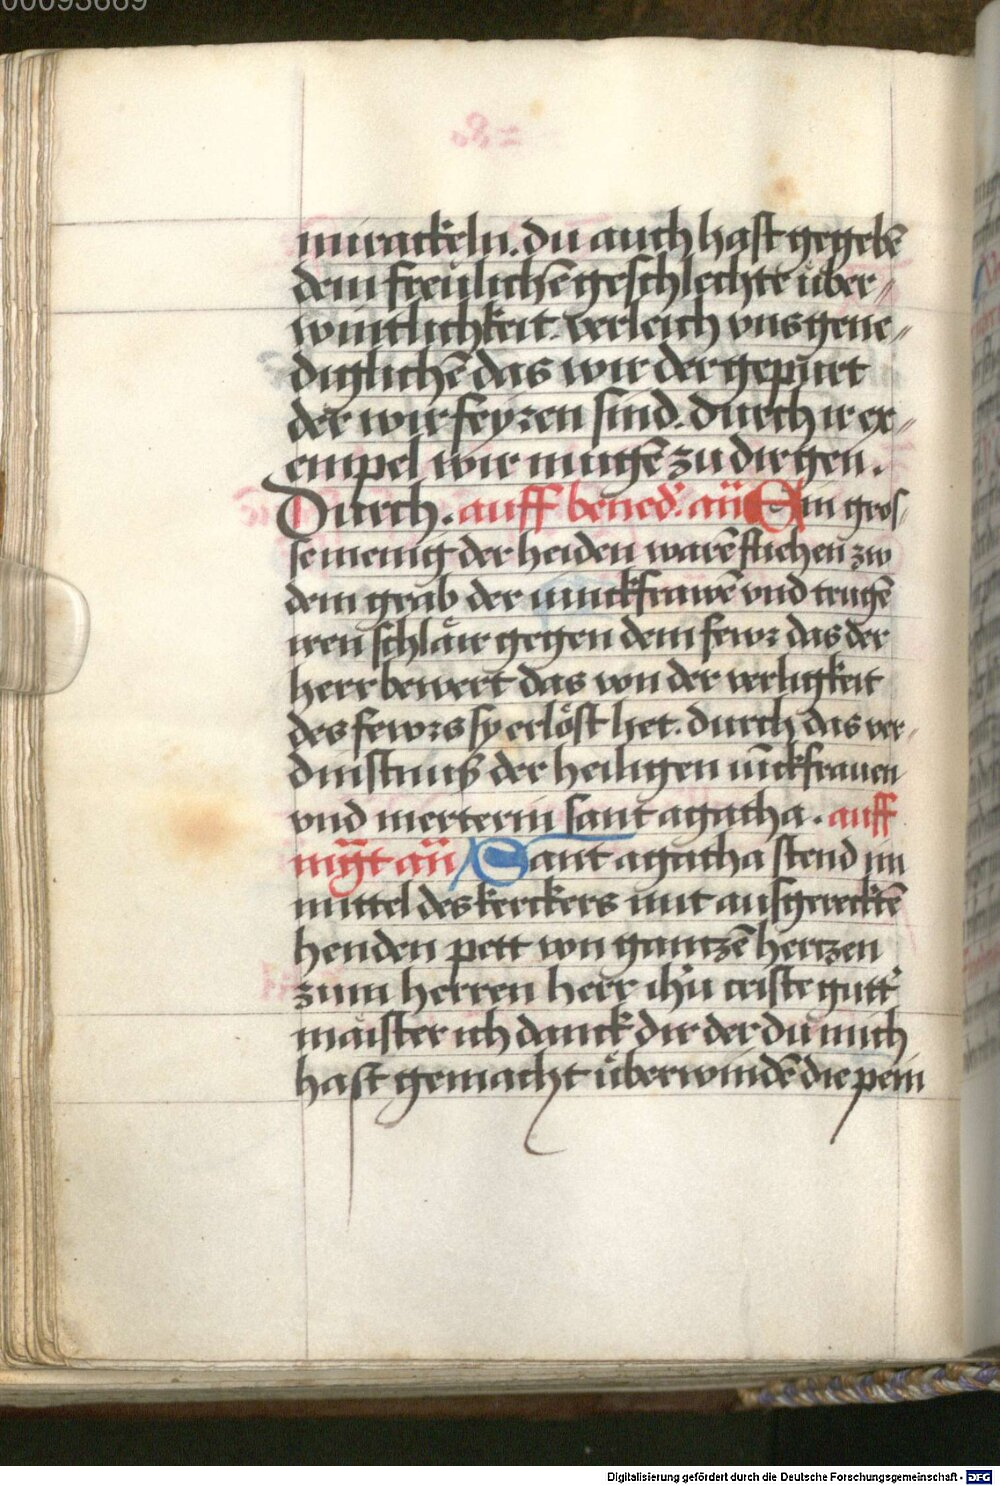 00093669
mirackeln. du auch hast gegebē
dem freẅlichē geschlechte über⸗
wintlichkeit. verleich vns gene⸗
diglichē das wir der gepurt
der wir feyren sind. durch ir ex⸗
empel wir mugē zu dir gen.
Durch. auff bened̛. añ Ein gros⸗
se menig der heiden warē fliehen zw
dem grab der iunckfrawē vnd trugē
iren schlair gegen dem fewr das der
herr bewert das von der verligkeit
des fewrs sy erlöst het. durch das ver⸗
dinstnuß der heiligen iūckfrauen
vnd merterin sant agatha. auff
mg̅t añ Sant agatha stend im
mittel des kerckers mit ausgerecktē
henden pett von gantzē hertzen
zum herren herr ihū criste gutt̛
maister ich danck dir der du mich
hast gemacht überwindē die pein
Digitalisierung gefördert durch die Deutsche Forschungsgemeinschaft - DFG